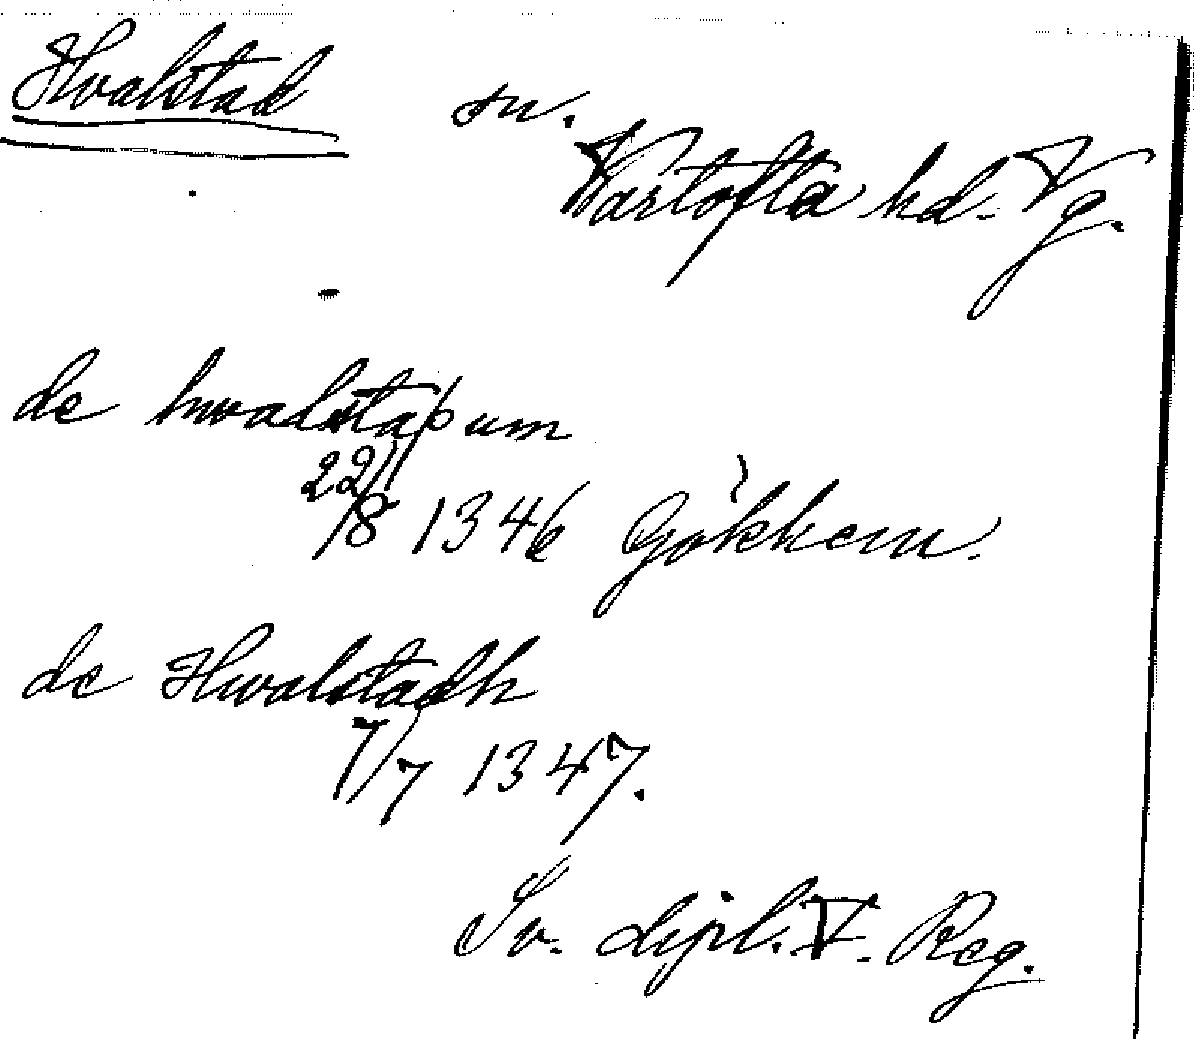 Hvalstad sn.
Vartofta hd. Vg.
de hwalstaþum
22/8 1346 Gökhem.
de Hwalstadh
7/7 1347.
Sv. dipl. V. Reg.